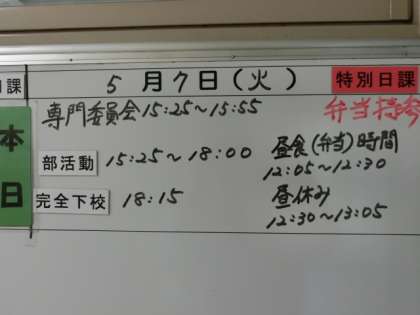 日課 5月7日(火) 特別日課
専門委員会 15:25~15:55 弁当持参
本日
部活動 15:25~18:00 昼食(弁当)時間
12:05~12:30
完全下校 18:15 昼休み
12:30~13:05